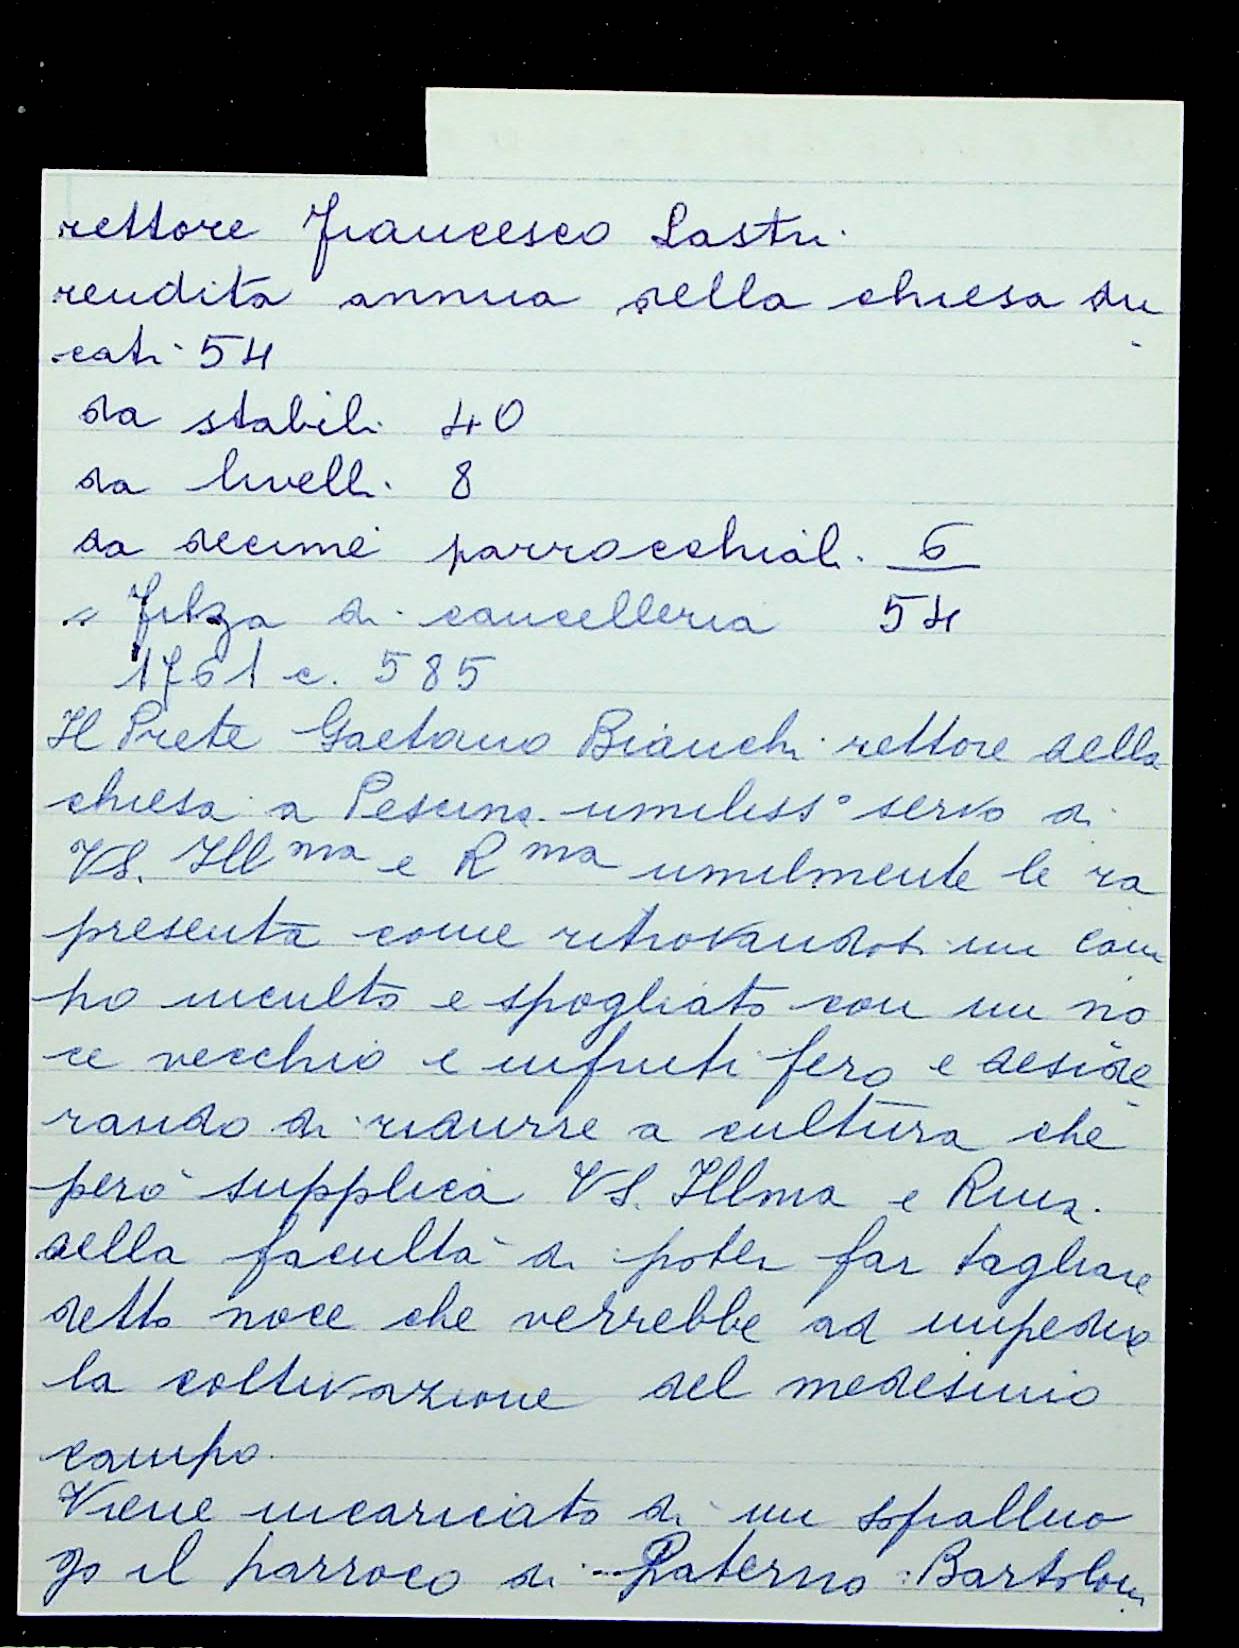 rettore Francesco Lastri
rendita annua della chiesa du
cati 54
da stabili 40
da livelli 8
da decime parrocchiali 6
" Filza di cancelleria 54
1761 c. 585
Il Prete Gaetano Bianchi rettore della
chiesa a Pescina umiliss° servo di
VS. Ill ma e R ma umilmente le ra
presenta come ritrovandosi un cam
po inculto e spogliato con un no
ce vecchio e infruttifero e deside
rando di ridurre a cultura che
però supplica VS. Illma e Rma.
della facultà di poter far tagliare
detto noce che verrebbe ad impedire
la coltivazione del medesimo
campo.
Viene incaricato di un sopralluo
go il parroco di Paterno: Bartolom